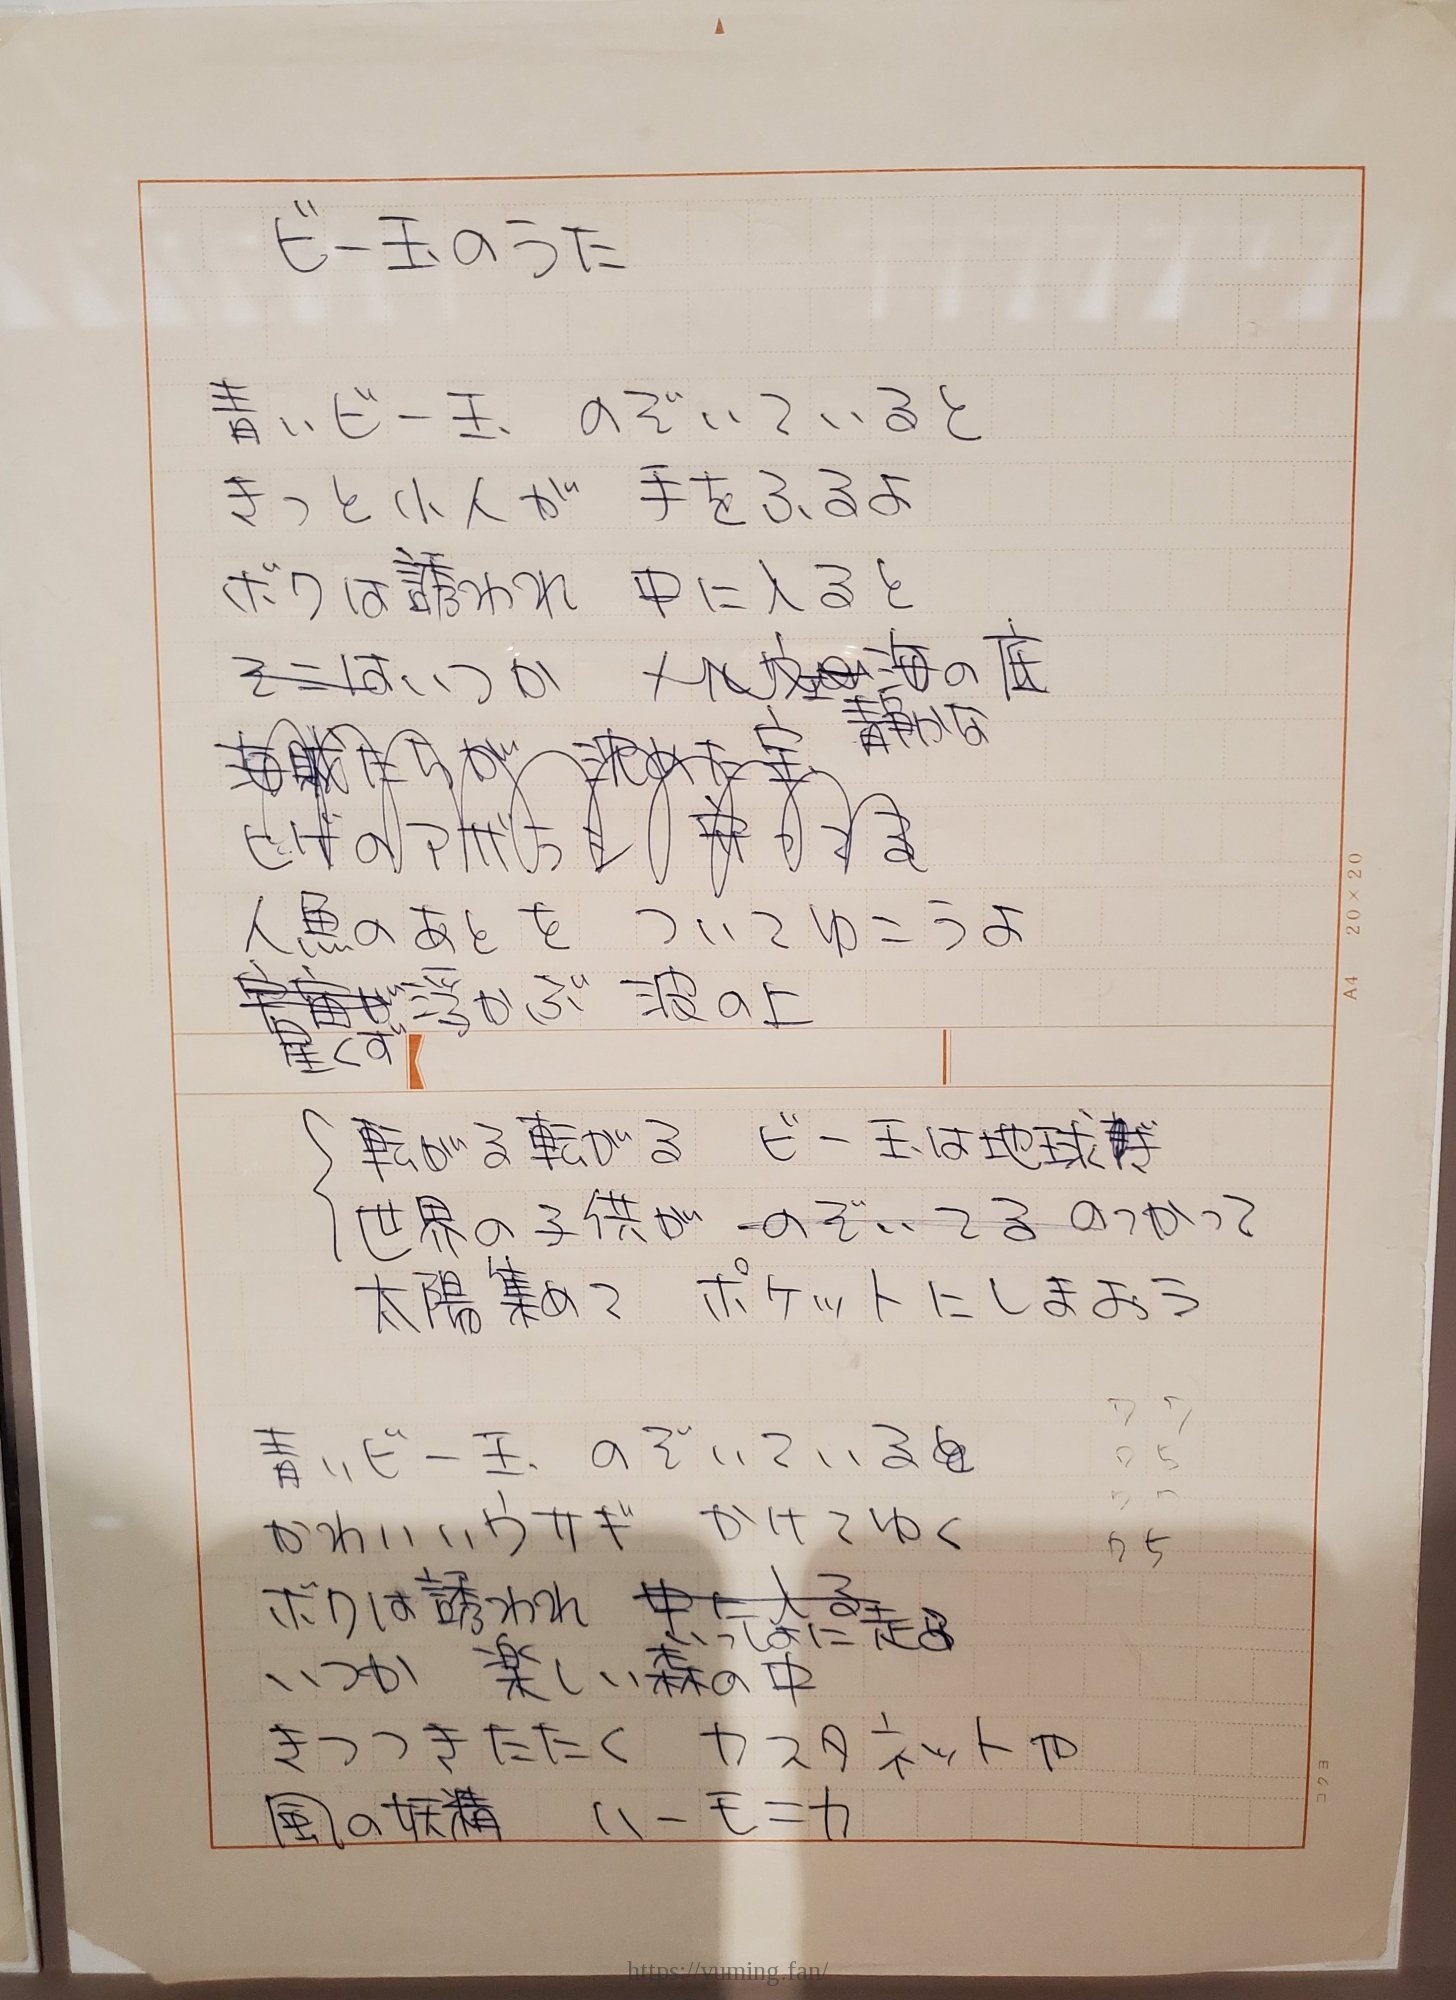 ビー玉のうた
青いビー玉 のぞいていると
きっと小人が 手をふるよ
ボクは誘われ 中に入ると
そこはいつか 海の底
静かな
海賊たちが 沈めた宝
ひげのアザラシ 番をする
人魚のあとを ついてゆこうよ
宇宙が浮かぶ 波の上
星くず
転がる転がる ビー玉は地球
世界の子供が のぞいてる のっかって
太陽集めて ポケットにしまおう
青いビー玉 のぞいていると
かわいいウサギ かけてゆく
ボクは誘われ 中に入る
いっしょに走る
いつか 楽しい森の中
きつつきたたく カスタネットや
風の妖精 ハーモニカ
7 7
7 5
7 7
7 5
A4 20×20
コクヨ
https://yuming.fan/